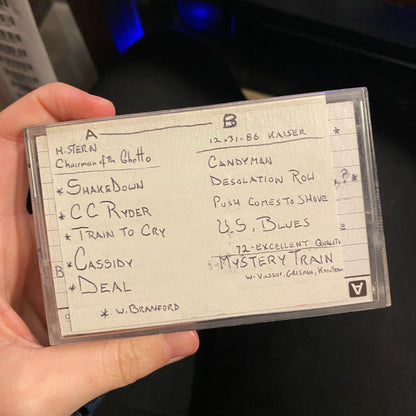 A
H. STERN
Chairman of the Ghetto
* SHAKEDOWN
* CC RYDER
* TRAIN TO CRY
* CASSIDY
* DEAL
* W. BRANFORD
B
12.31.86 KAISER
CANDYMAN
DESOLATION ROW
PUSH COMES TO SHOVE
U.S. BLUES
72 - EXCELLENT QUALITY
MYSTERY TRAIN
W- VASSAR, GRISMAN,
A